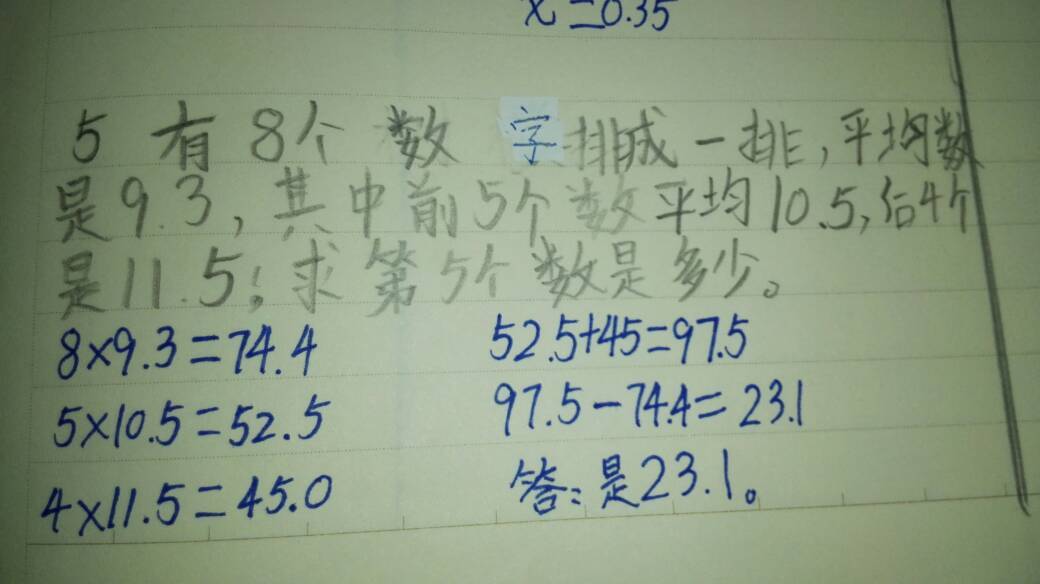 x=0.35
5 有8个数字排成一排,平均数
是9.3,其中前5个数平均10.5,后4个
是11.5;求第5个数是多少。
8×9.3=74.4
52.5+45=97.5
5×10.5=52.5
97.5-74.4=23.1
4×11.5=45.0
答:是23.1。